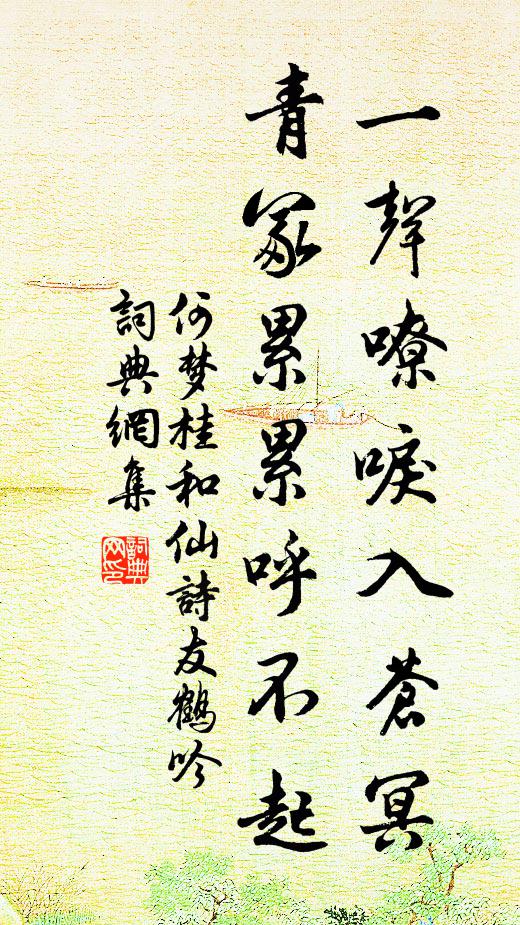 一聲嘹唳入蒼冥
青冢累累呼不起
何梦桂和仙詩友鶴吟
詞典網集
詞典网印